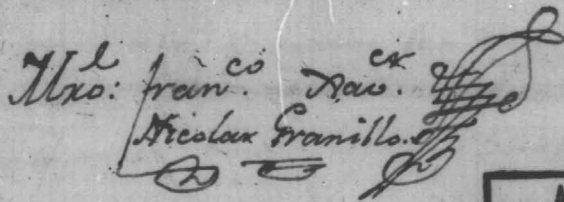 Mro:l franco. Xaver.
Nicolas Granillo.